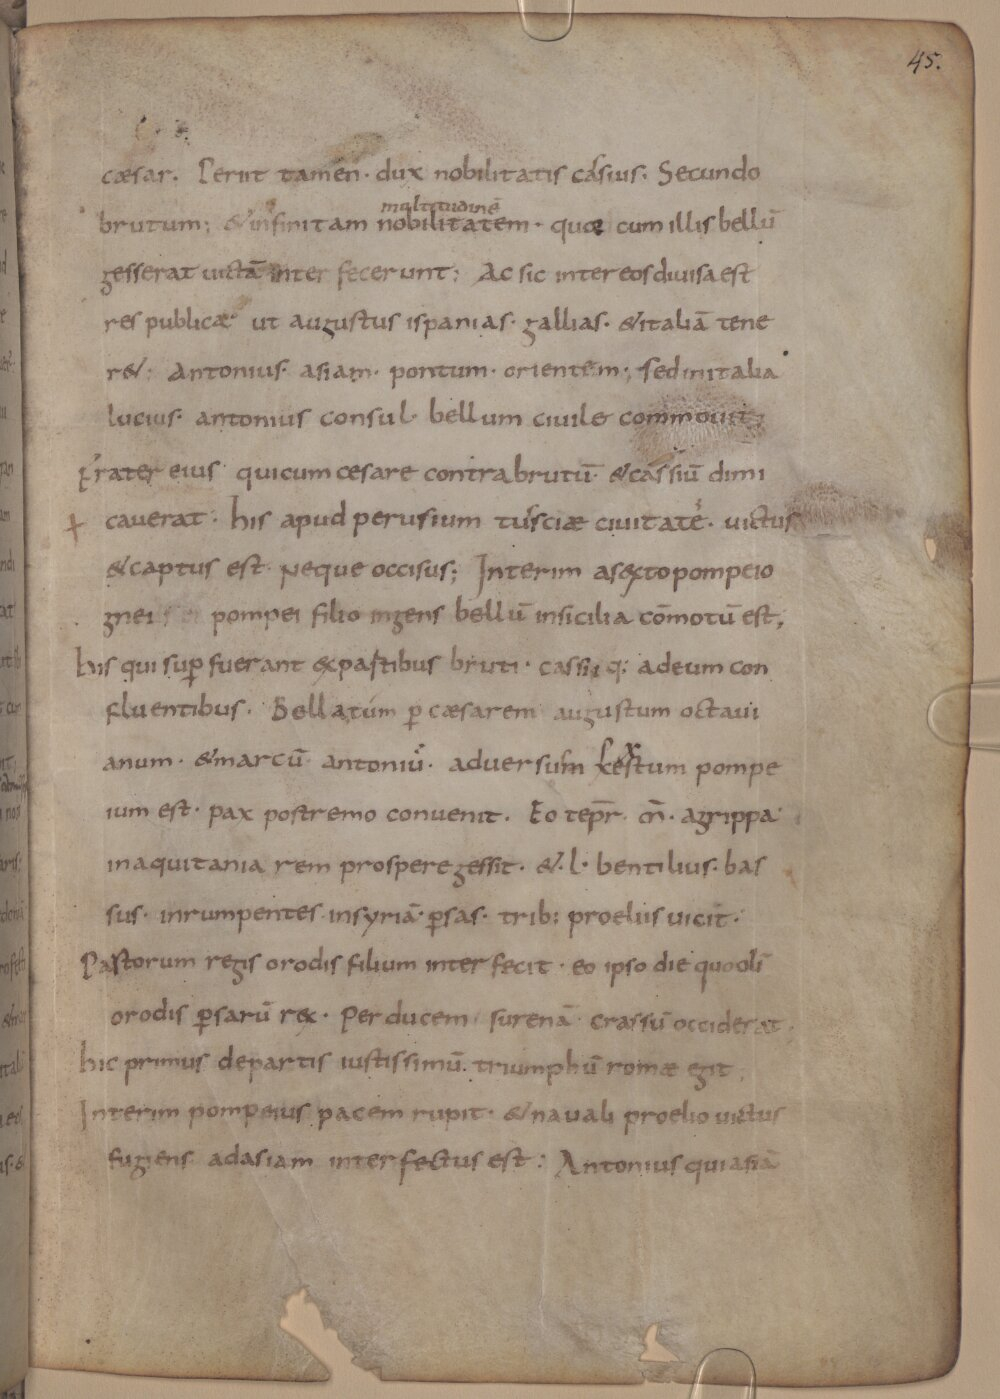 45.
cæsar. Periit tamen· dux nobilitatis cassius: Secundo
multitudinē
brutum; &infinitam nobilitatem· quæ cum illis bellū
gesserat uictā inter fecerunt; Ac sic inter eos diuisa est
res publicæ ut augustus ispanias· gallias· &italiā tene
r&; Antonius· asiam· pontum· orientem; sed in italia
lucius· antonius consul· bellum ciuile commouit;
Frater eius quicum cesare contra brutū· &cassiū dimi
cauerat· his apud perusium tusciæ ciuitatē· uictus
&captus est· Neque occisus; Interim asexto pompeio
gnei pompei filio ingens bellū insicilia cōmotū est;
his qui sup̄ fuerant expartibus bruti· cassii q; adeum con
fluentibus. Bellatum p̄ cæsarem augustum octaui
anum· &marcū· antoniū· aduersum sextum pompe
ium est· pax postremo conuenit. Eo tep̄r· m̄· agrippa
inaquitania rem prospere gessit· &·l· bentilius· bas
sus· inrumpentes insyriā· p̄sas· trib; proeliis uicit·
Pastorum regis orodis filium inter fecit· eo ipso die quo olī
orodis p̄sarū rex· Per ducem surenā crassū occiderat·
hic primus departis iustissimū. triumphū romæ egit
Interim pompeius pacem rupit· &nauali proelio uictus
fugiens adasiam interfectus est: Antonius qui asiā